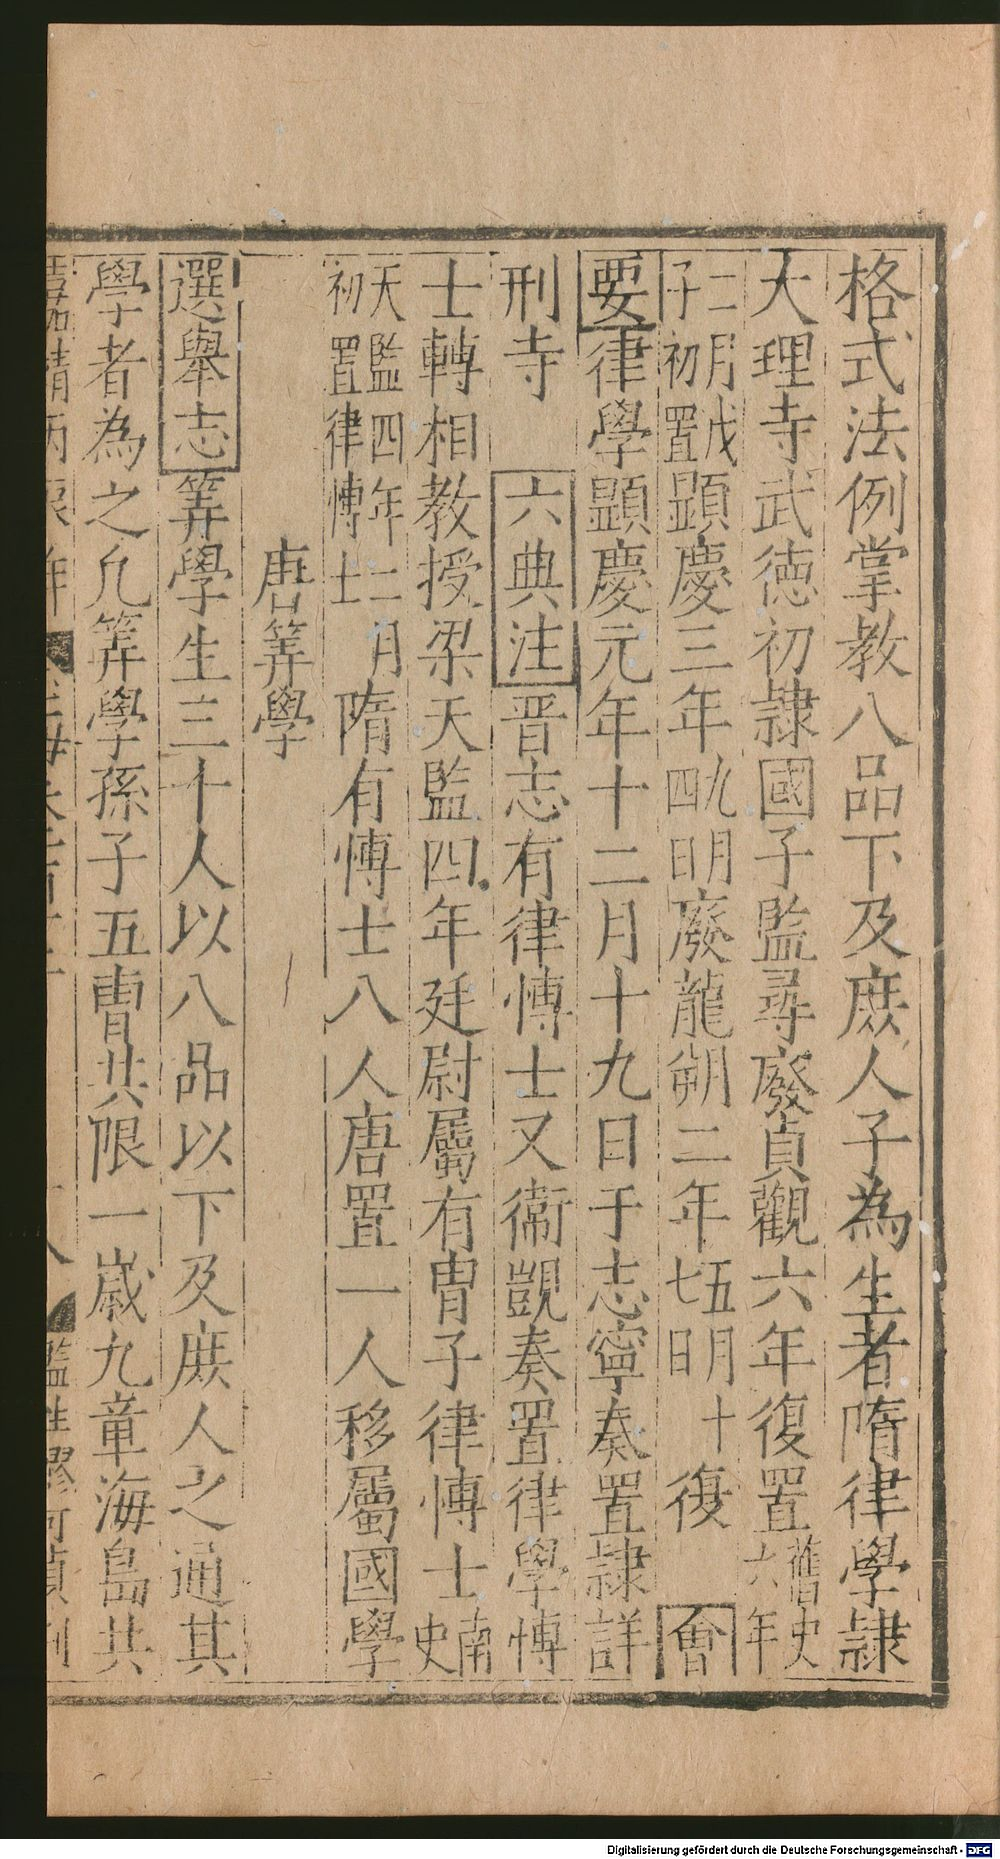 格式法例掌教八品下及庶人子為生者隋律學隸
大理寺武徳初隷國子監尋廢貞觀六年復置舊史六年
二月戊子初置顕慶三年九明四日廢龍朔二年五明十七日復會
要律學顕慶元年十二月十九日于志寧奏置隷詳
刑寺　六典注晋志有律愽士又衛覬奏置律學愽
士轉相教授梁天監四年廷尉屬有胄子律愽士南史
天監四年二月初置律愽士隋有愽士八人唐置一人移屬國學
唐筭學
選舉志筭學生三十人以八品以下及庶人之通其
學者為之凢筭學孫子五曹共限一歳九章海島共
嘉靖丙辰年
監生廖可貞刋
Digitalisierung gefördert durch die Deutsche Forschungsgemeinschaft - DFG